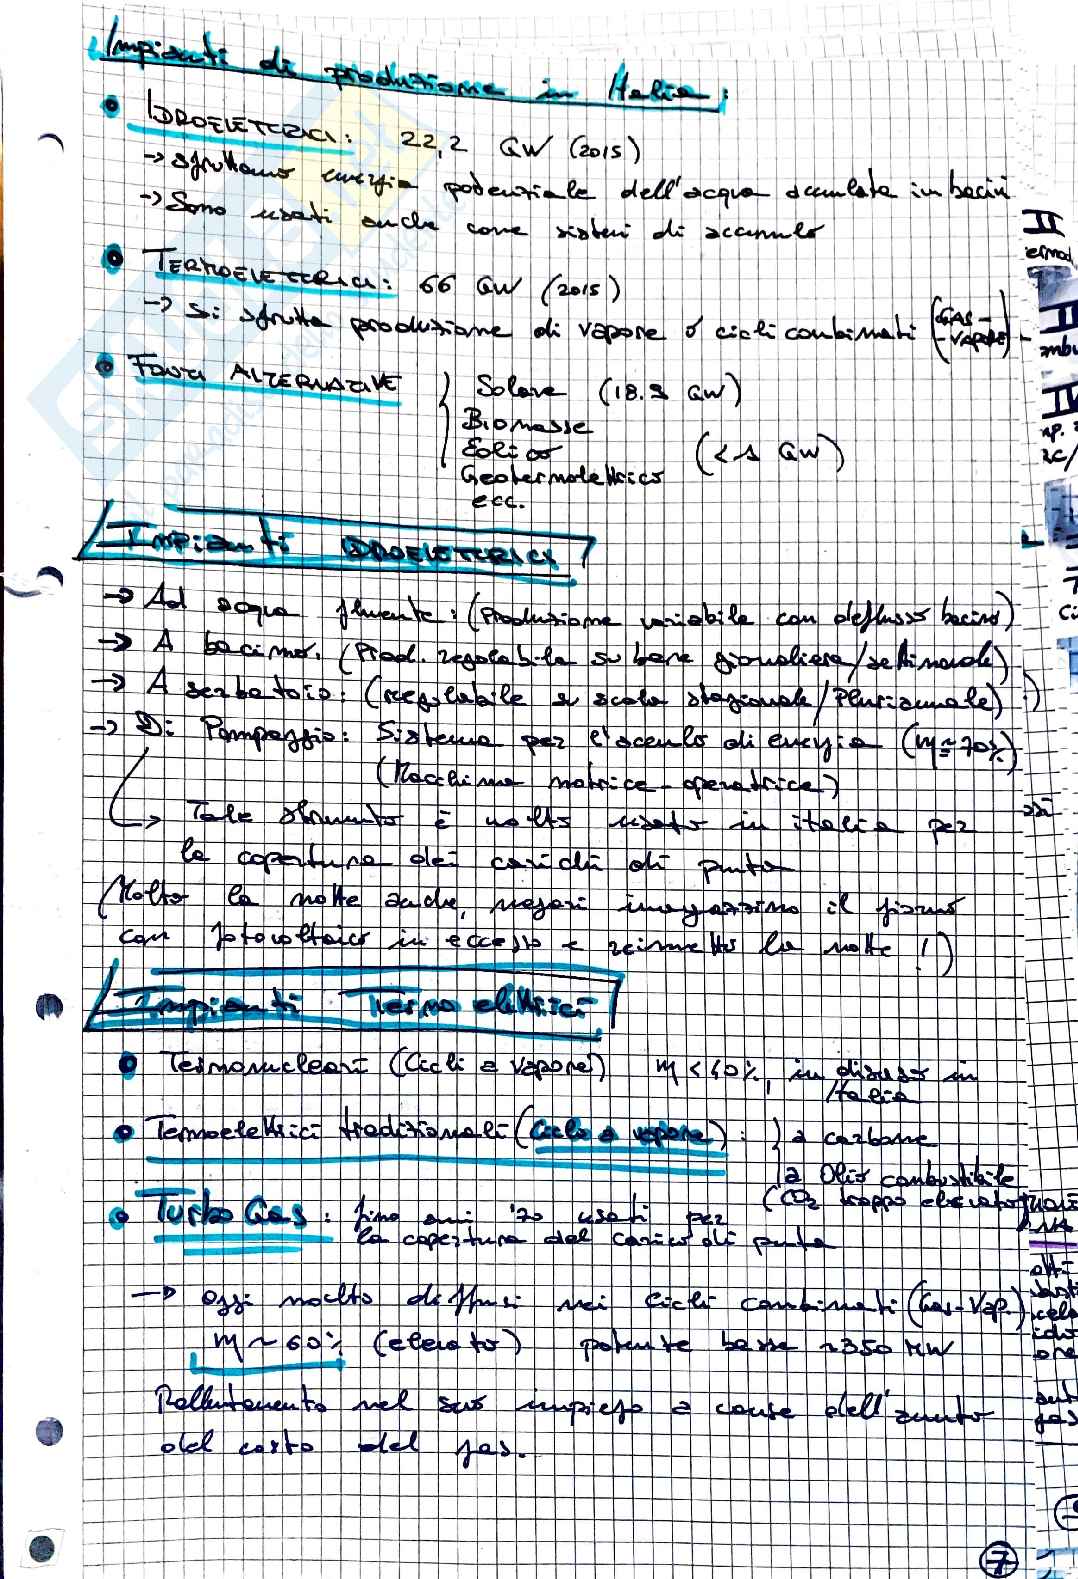 Impianti di produzione in Italia:
IDROELETTRICI: 22,2 GW (2015)
-> sfruttano energia potenziale dell'acqua acumlata in bacini
-> Sono usati anche come sistemi di accumulo
TERMOELETTRICI: 66 GW (2015)
-> Si sfrutta produzione di vapore o cicli combinati (GAS-
-VAPORE)
FONTI ALTERNATIVE
Solare (18.9 GW)
Biomasse
Eolico (<1 GW)
Geotermolettrico
ecc.
Impianti IDROELETTRICI
-> Ad acqua fluente: (Produzione variabile con deflusso bacino)
-> A bacino: (Prod. regolabile su base giornaliera/settimanale)
-> A serbatoio: (regolabile su scala stagionale/Pluriannuale)
-> Di Pompaggio: Sistema per l'acculo di energia (η≃70%)
(Macchina motrice-operatrice)
-> Tale strumento è molto usato in italia per
la copertura dei carichi di punta
(Molto la notte anche, magari immagazzino il giorno
con fotovoltaico in eccesso e reimmetto la notte!)
Impianti Termoelettrici
Termonucleari (Cicli a vapore) η<40%, in disuso in
Italia
Termoelettrici tradizionali (Ciclo a vapore): a carbone
a Olio combustibile
(CO₂ troppo elevato)
Turbo Gas: fino anni '70 usati per
la copertura del carico di punta
-> oggi molto diffusi nei cicli combinati (Gas-Vap.)
η~60% (elevato) potente basse ~350 MW
Rallentamento nel suo impiego a causa dell'aumto
del costo del gas.
7